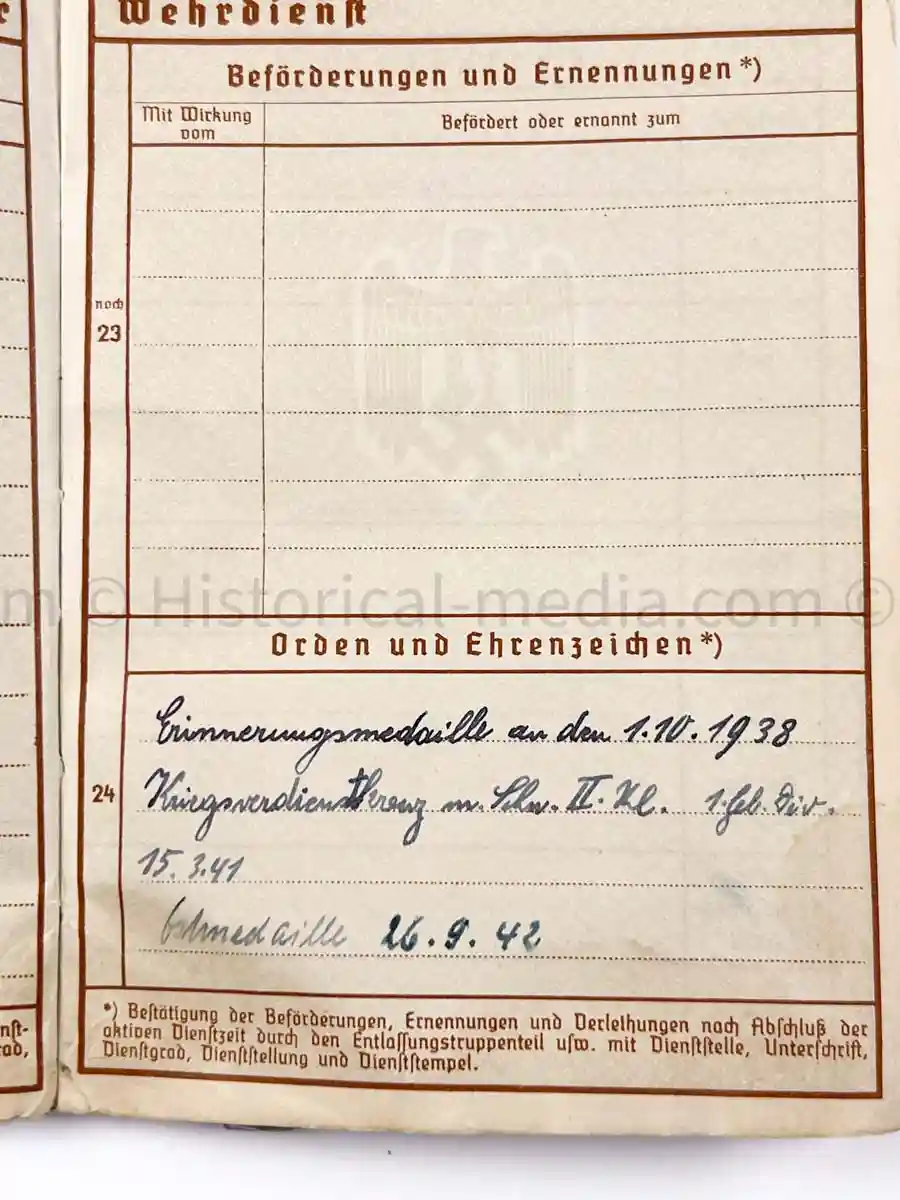 r
Wehrdienst
Beförderungen und Ernennungen *)
Mit Wirkung vom
Befördert oder ernannt zum
noch
23
m © Historical-media.com ©
Orden und Ehrenzeichen *)
24
Erinnerungsmedaille an den 1.10.1938
Kriegsverdienstkreuz m. Schw. II. Kl. 1. Geb. Div.
15.3.41
Ostmedaille 26.9.42
*) Bestätigung der Beförderungen, Ernennungen und Verleihungen nach Abschluß der
aktiven Dienstzeit durch den Entlassungstruppenteil usw. mit Dienststelle, Unterschrift,
Dienstgrad, Dienststellung und Dienststempel.
nst-
rad,